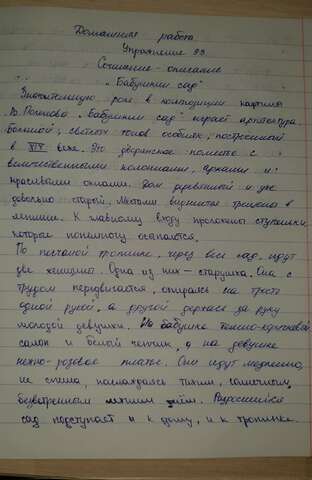 Домашняя работа
Упражнение 93
Сочинение - описание
„Бабушкин сад"
Значительную роль в композиции картины
В. Поленова „Бабушкин сад" играет архитектура.
Большой, светлых тонов особняк, построенный
в XIX веке. Это дворянское поместье с
величественными колоннами, арками и
красивыми окнами. Дом деревянный и уже
довольно старый. Местами виднеются трещины в
лепнине. К главному входу проложены ступеньки,
которые понемногу осыпаются.
По песчаной тропинке, через весь сад, идут
две женщины. Одна из них - старушка. Она с
трудом передвигается, опираясь на трость
одной рукой, а другой держась за руку
молодой девушки. На бабушке темно-коричневый
салоп и белый чепчик, а на девушке
нежно-розовое платье. Они идут медленно,
не спеша, наслаждаясь тихим, солнечным,
безветренным летним днём. Разросшийся
сад подступает и к дому, и к тропинке.